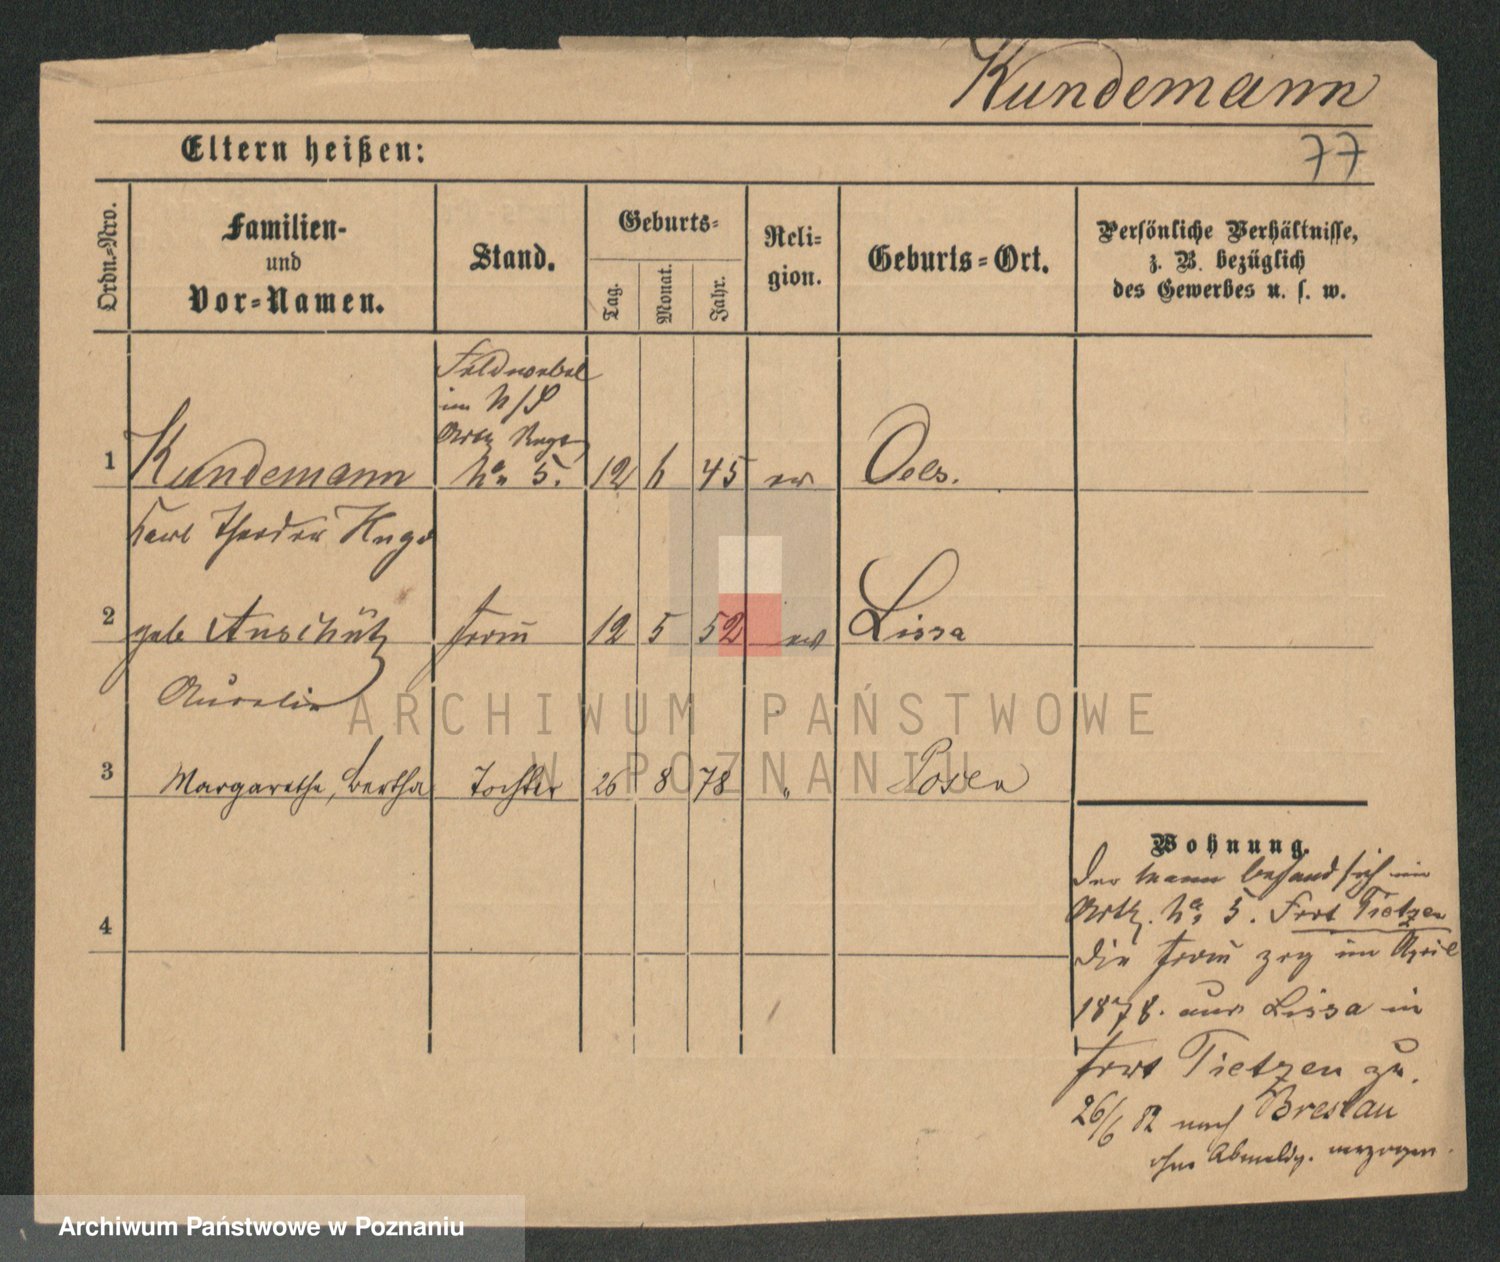 Kundemann
Eltern heißen:
77
Ordn.-Nro.
Familien-
und
Vor-Namen.
Stand.
Geburts-
Tag.
Monat.
Jahr.
Reli-
gion.
Geburts-Ort.
Persönliche Verhältnisse,
z. B. bezüglich
des Gewerbes u. s. w.
Feldwebel
im N/S
Artl. Regt
1 Kundemann No 5. 12 6 45 ev Oels.
Carl Theodor Hugo
2 geb Anschütz Frau 12 5 52 ev Lissa
Aurelie
3 Margarethe, Bertha Tochter 26 8 78 " Posen
4
Wohnung.
Der Mann befand sich im
Artl. No 5. Fort Tietzen
die Frau zog im April
1878. aus Lissa in
Fort Tietzen zu.
26/6 82 nach Breslau
ohne Abmeldg. verzogen.
ARCHIWUM PAŃSTWOWE
W POZNANIU
Archiwum Państwowe w Poznaniu